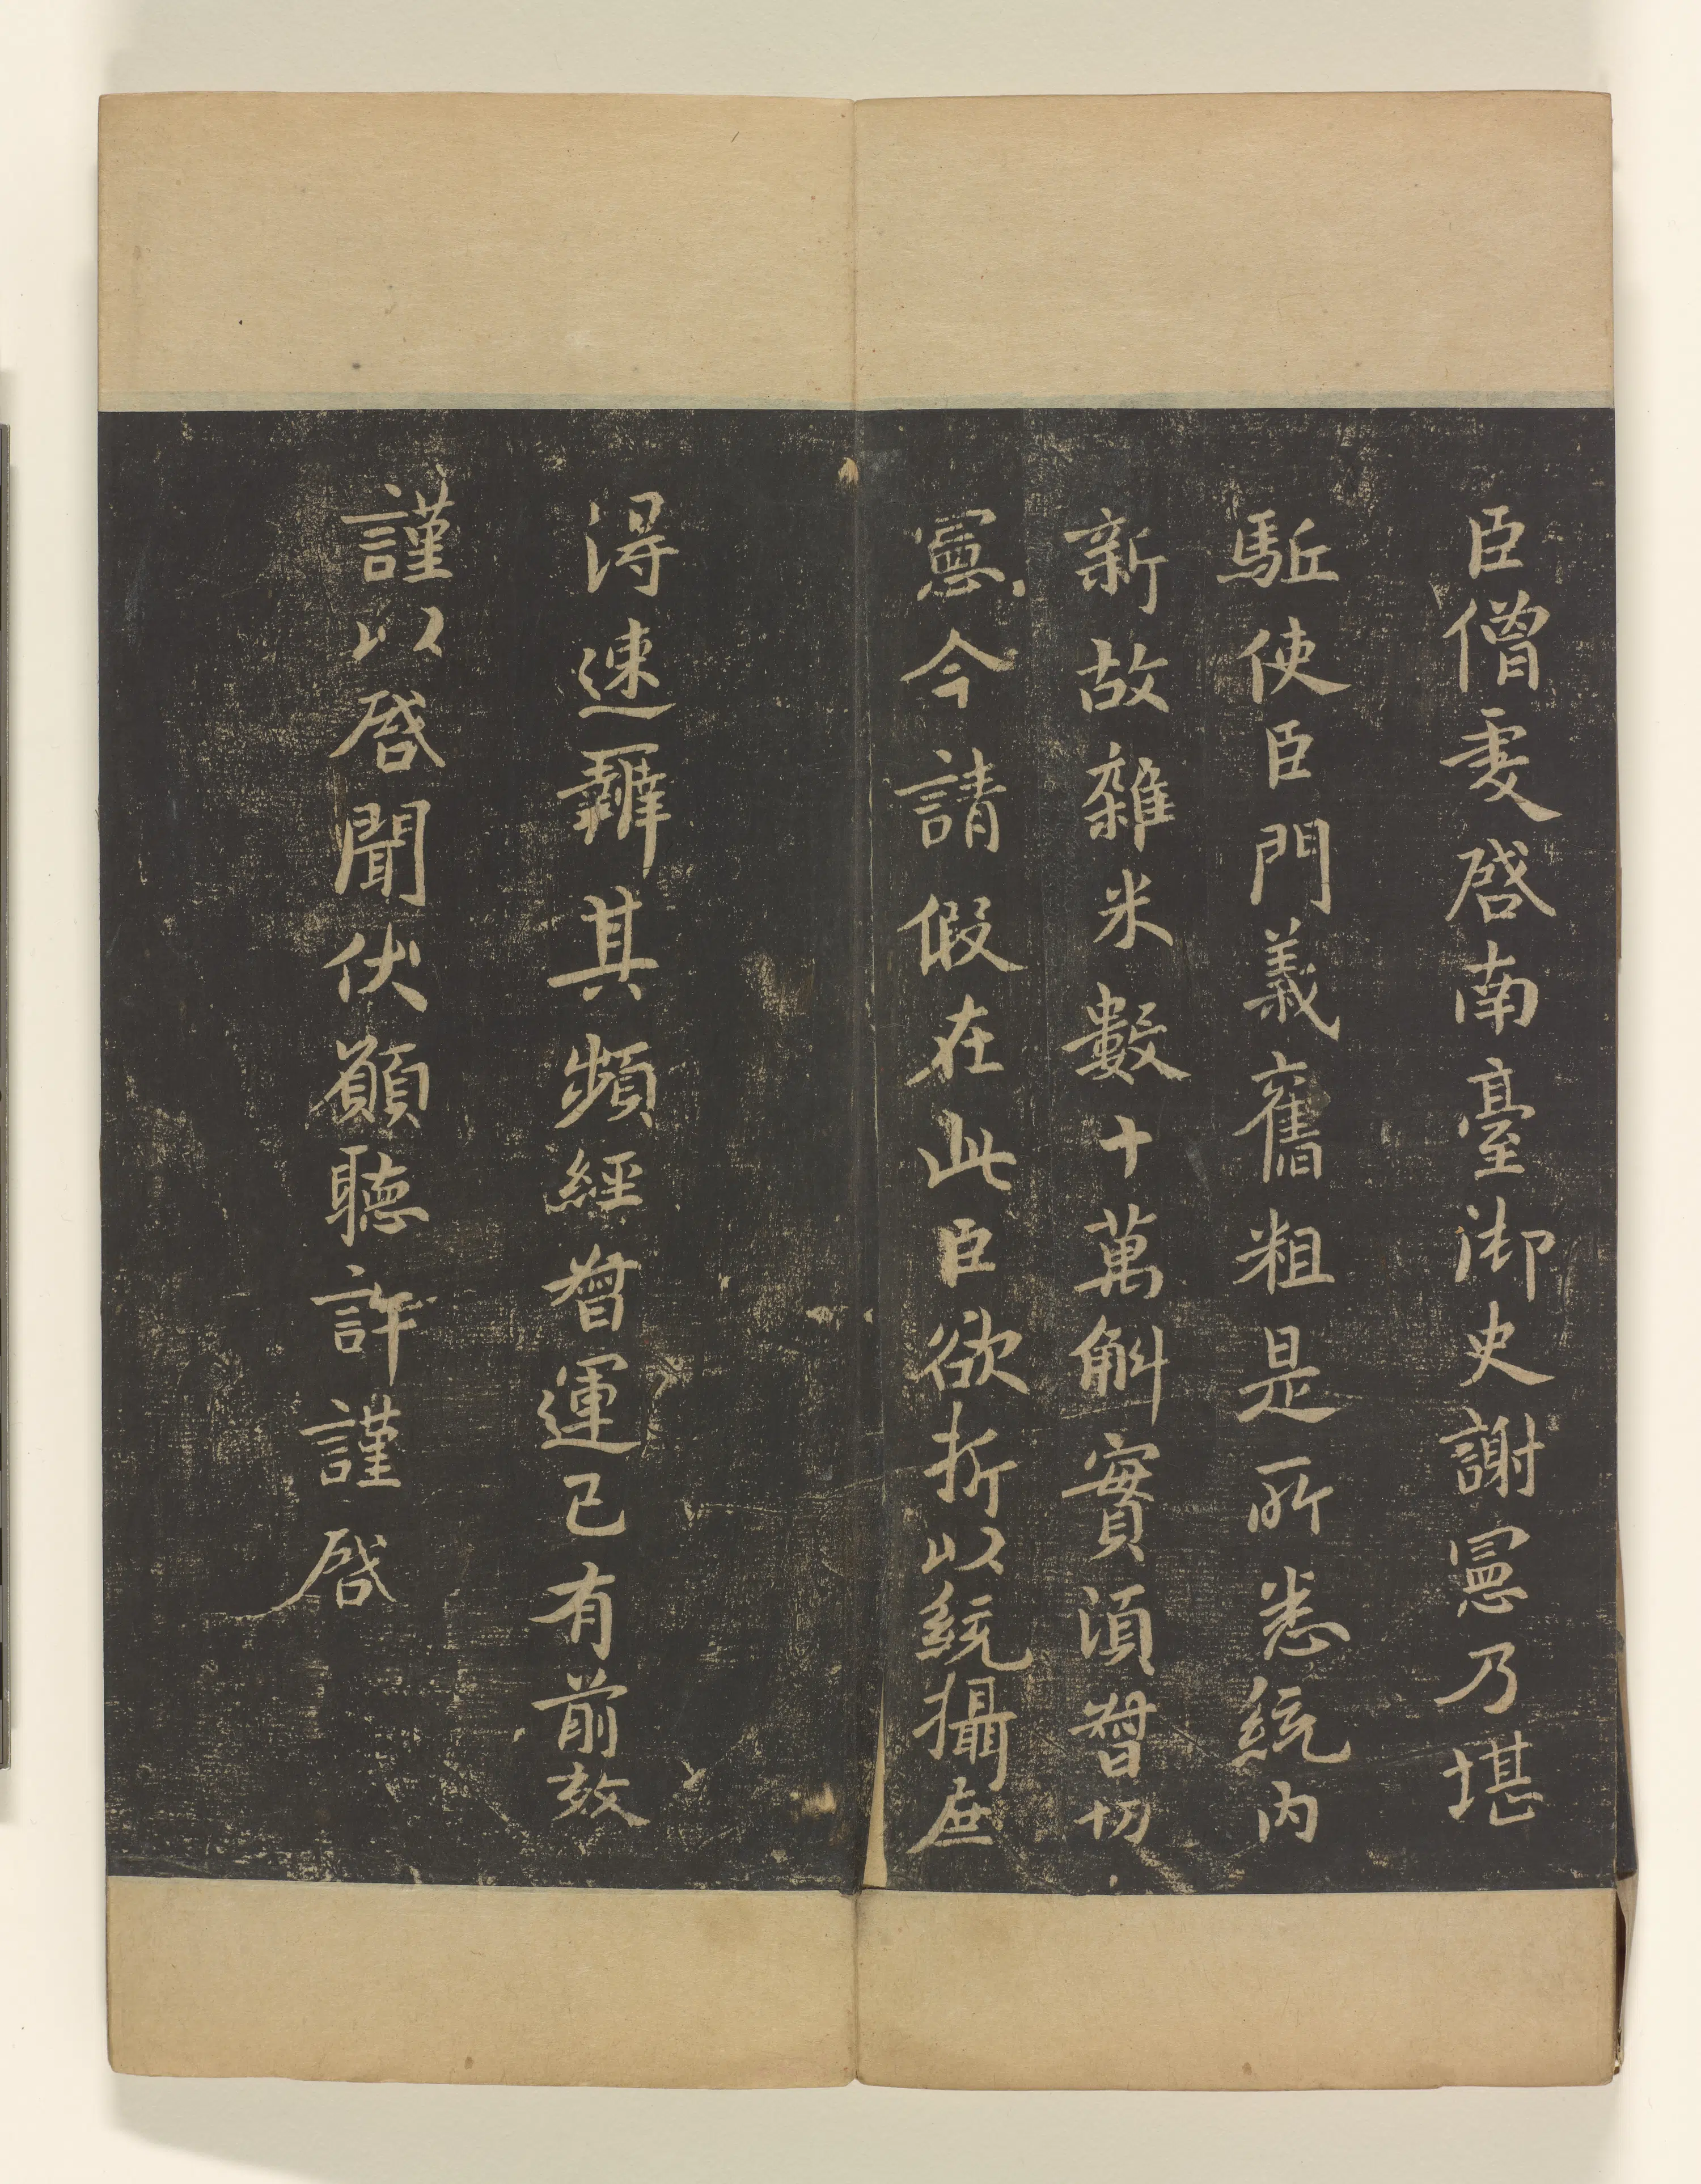 臣僧虔啓南臺御史謝憲乃堪
駈使臣門義舊粗是所悉統内
新故雜米數十萬斛實湏督切
憲今請假在此臣欲折以統攝庶
得速辦其頻經督運已有前效
謹以啓聞伏願聽許謹啓